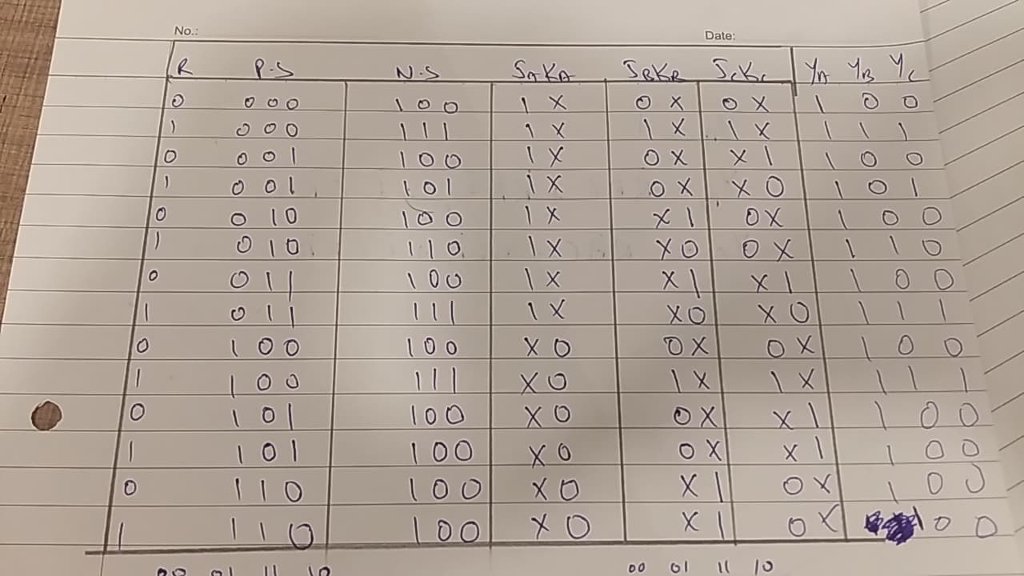 No.: Date:
R P.S N.S JAKA JBKB JCKC YA YB YC
0 000 100 1 X 0 X 0 X 1 0 0
1 000 111 1 X 1 X 1 X 1 1 1
0 001 100 1 X 0 X X 1 1 0 0
1 001 101 1 X 0 X X 0 1 0 1
0 010 100 1 X X 1 0 X 1 0 0
1 010 110 1 X X 0 0 X 1 1 0
0 011 100 1 X X 1 X 1 1 0 0
1 011 111 1 X X 0 X 0 1 1 1
0 100 100 X 0 0 X 0 X 1 0 0
1 100 111 X 0 1 X 1 X 1 1 1
0 101 100 X 0 0 X X 1 1 0 0
1 101 100 X 0 0 X X 1 1 0 0
0 110 100 X 0 X 1 0 X 1 0 0
1 110 100 X 0 X 1 0 X 1 0 0
00 01 11 10 00 01 11 10